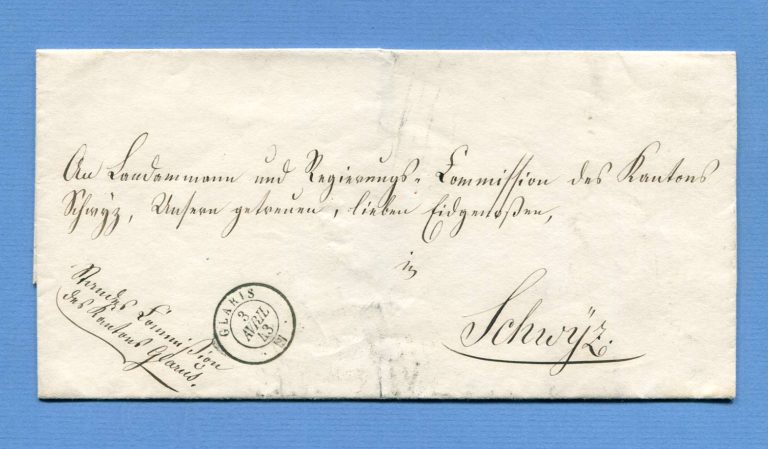 An Landammann und Regierungs-Commission des Kantons
Schwÿz, Unsern getreuen, lieben Eidgenoßen,
in
Schwÿz.
Standes Commission
des Kantons Glarus.
GLARIS
3
AVRIL
43